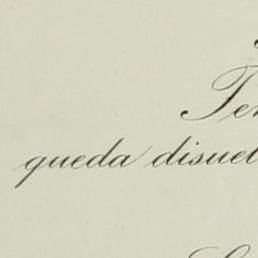 Te
queda disuel